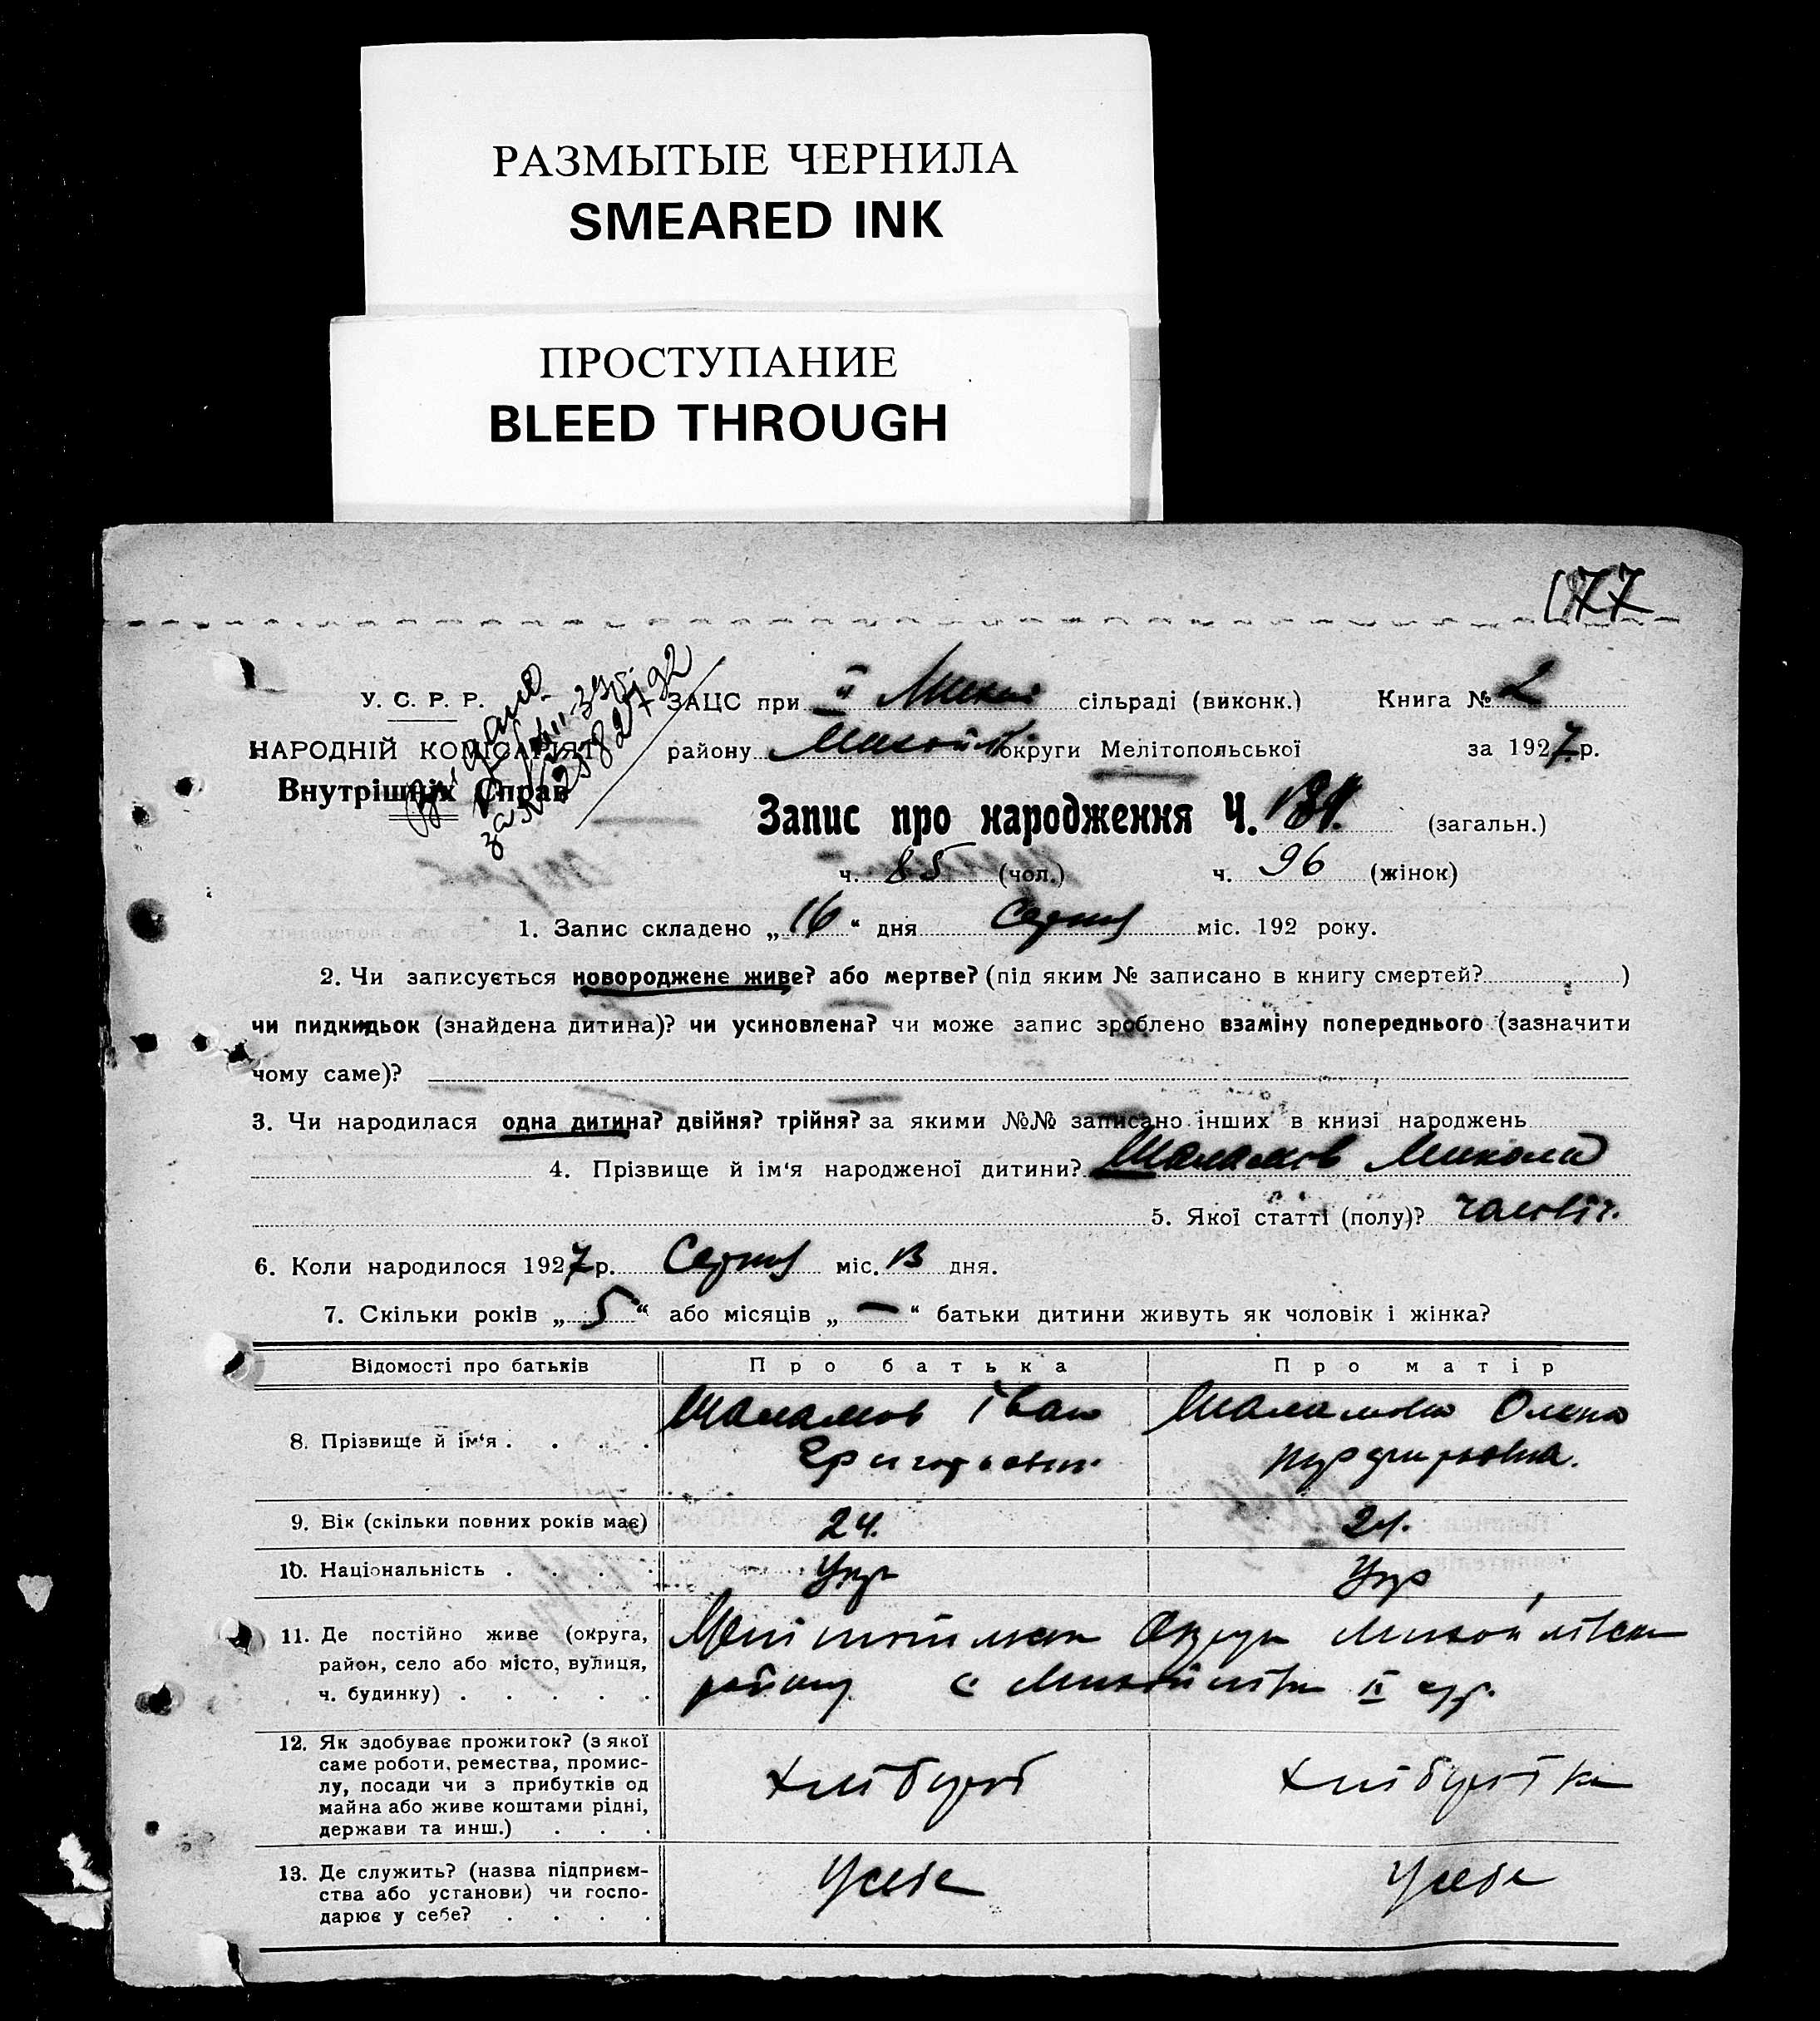 РАЗМЫТЫЕ ЧЕРНИЛА
SMEARED INK
ПРОСТУПАНИЕ
BLEED THROUGH
177
У. С. Р. Р.
НАРОДНІЙ КОМІСАРІЯТ
Внутрішніх Справ
ЗАЦС при II сільраді (виконк.) Книга № 2
району округи Мелітопольської за 1927 р.
Запис про народження Ч. (загальн.)
ч. 85 (чол.) ч. 96 (жінок)
1. Запис складено „16“ дня Серпня міс. 192 року.
2. Чи записується новороджене живе? або мертве? (під яким № записано в книгу смертей? )
чи пидкидьок (знайдена дитина)? чи усиновлена? чи може запис зроблено взаміну попереднього (зазначити
чому саме)?
3. Чи народилася одна дитина? двійня? трійня? за якими №№ записано інших в книзі народжень
4. Прізвище й ім‘я народженої дитини? Шаламов Микола
5. Якої статті (полу)? чоловіч.
6. Коли народилося 1927 р. Серпня міс. 13 дня.
7. Скільки років „5“ або місяців „—“ батьки дитини живуть як чоловік і жінка?
Відомості про батьків Про батька Про матір
8. Прізвище й ім‘я . . . . Шаламов Іван Шаламова Олена
Григорьович
9. Вік (скільки повних років має) 24. 24.
10. Національність . . . . Укр Укр
11. Де постійно живе (округа,
район, село або місто, вулиця,
ч. будинку) . . . . .
Округи
району с II
12. Як здобуває прожиток? (з якої
саме роботи, ремества, промис-
лу, посади чи з прибутків од
майна або живе коштами рідні,
держави та инш.) . . .
хлібороб хліборобка
13. Де служить? (назва підприєм-
ства або установи) чи госпо-
дарює у себе? . . . .
У себе У себе